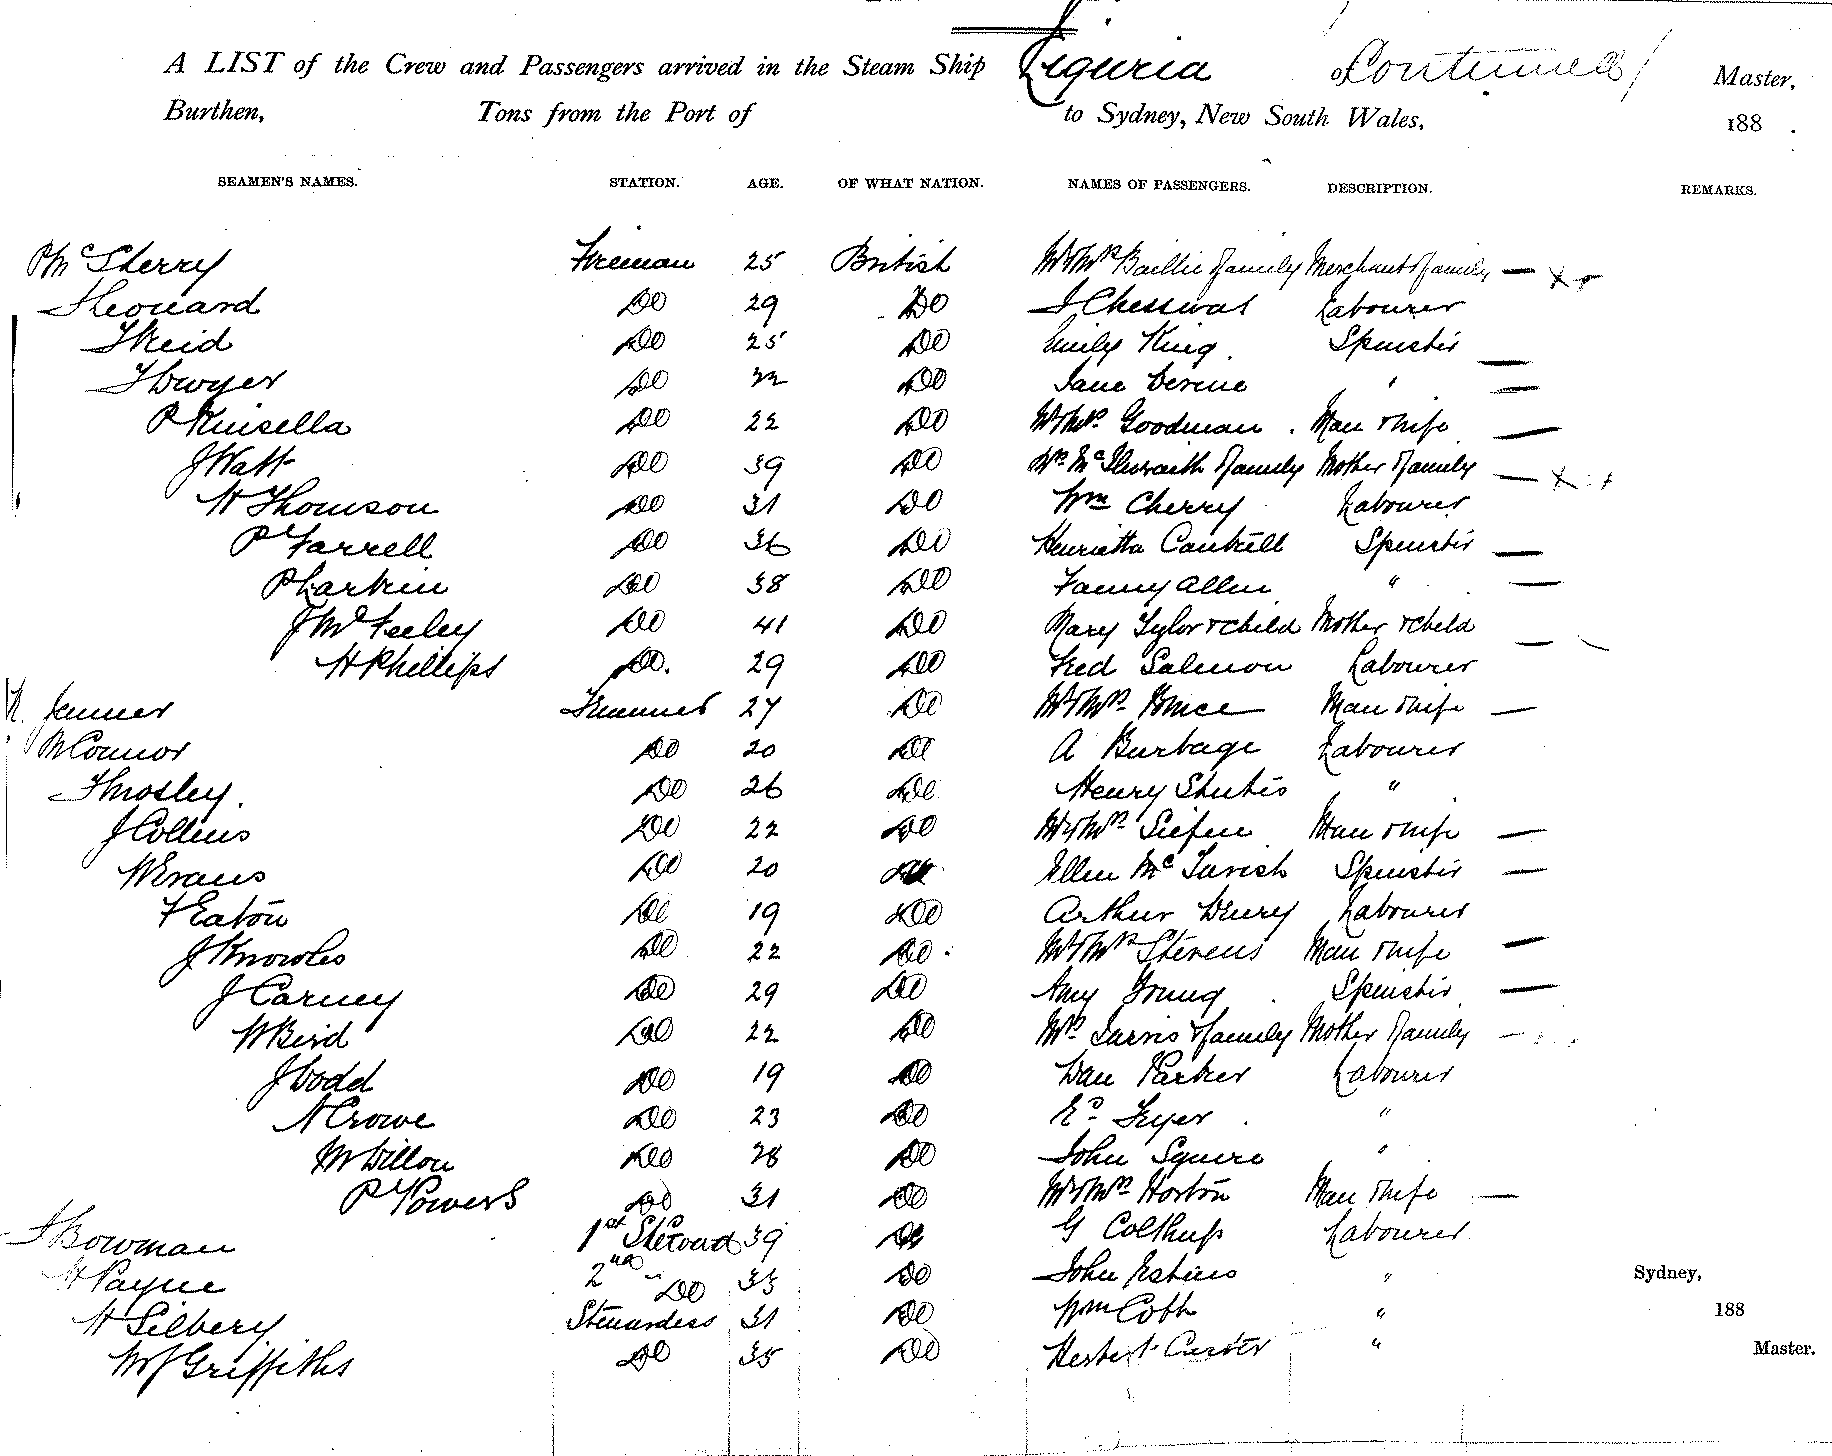 A LIST of the Crew and Passengers arrived in the Steam Ship Liguria of Continued Master,
Burthen, Tons from the Port of to Sydney, New South Wales, 188 .
SEAMEN'S NAMES. STATION. AGE. OF WHAT NATION. NAMES OF PASSENGERS. DESCRIPTION. REMARKS.
P McSherry Fireman 25 British Mr & Mrs Baillie & family Merchant & family
J Leonard Do 29 Do J Chesswas Labourer
J Reid Do 25 Do Emily King. Spinster
J Dwyer Do 32 Do Jane Devine "
P Kinsella Do 22 Do Mr & Mrs Goodman. Man & wife
J Watt Do 39 Do Mrs McIlwraith & family Mother & family
H Thomson Do 31 Do Wm Cherry Labourer
P Farrell Do 36 Do Henrietta Cantrell Spinster
P Larkin Do 38 Do Fanny Allen "
J McFeeley Do 41 Do Mary Tylor & child Mother & child
H Phillips Do. 29 Do Fred Salmon Labourer
Jenner Trimmer 27 Do Mr & Mrs Man & wife
M Connor Do 20 Do A Burbage Labourer
T Mosley. Do 26 Do Henry Stubis "
J Collins Do 22 Do Mr & Mrs Siefen Man & wife
W Evans Do 20 Do Ellen McTavish Spinster
F Eaton Do 19 Do Arthur Henry Labourer
J Knowles Do 22 Do. Mr & Mrs Stevens Man & wife
J Carney Do 29 Do Amy Young Spinster
W Bird Do 22 Do Mrs Jarvis & family Mother & family
J Dodd Do 19 Do Dan Parker Labourer
N Crowe Do 23 Do Ed Fryer "
M Dillon Do 28 Do John Squire "
P Powers Do 31 Do Mr & Mrs Horton Man & wife
J Bowman 1st Steward 39 Do G Colthup Labourer
H Payne 2nd " Do 33 Do John "
Sydney,
H Silbery Stewardess 31 Do Wm Cobb "
188
M J Griffiths Do 35 Do Herbert Carter "
Master.